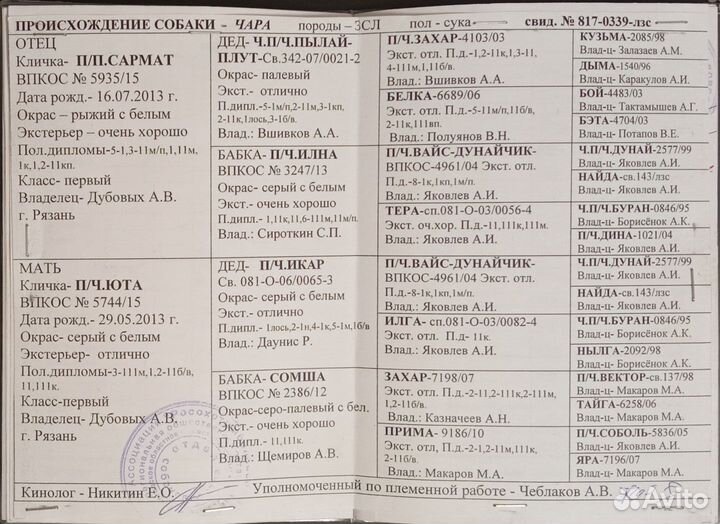 ПРОИСХОЖДЕНИЕ СОБАКИ - ЧАРА породы – ЗСЛ пол - сука - свид. № 817-0339-лзс
ОТЕЦ
Кличка- П/П.САРМАТ
ВПКОС № 5935/15
Дата рожд.- 16.07.2013 г.
Окрас – рыжий с белым
Экстерьер – очень хорошо
Пол.дипломы-5-1,3-11м/п,1,11м,
1к,1,2-11кп.
Класс- первый
Владелец- Дубовых А.В.
г. Рязань
ДЕД- Ч.П/Ч.ПЫЛАЙ-
ПЛУТ-Св.342-07/0021-2
Окрас- палевый
Экст.- отлично
П.дипл.-5-1м/п,2-11м,3-1кп,
2-11к,1лось,3-1б/в.
Влад.: Вшивков А.А.
БАБКА- П/Ч.ИЛНА
ВПКОС № 3247/13
Окрас- серый с белым
Экст.- очень хорошо
П.дипл.- 1,11к,11,6-111м,11м/п.
Влад.: Сироткин С.П.
П/Ч.ЗАХАР-4103/03
Экст. отл. П.д.-1,2-11к,1-3-11,
4-111м,1,11б/в.
Влад.: Вшивков А.А.
БЕЛКА-6689/06
Экст. отл. П.д.-5-11м/п,11б/в,
2-11к,111вп.
Влад.: Полуянов В.Н.
П/Ч.ВАЙС-ДУНАЙЧИК-
ВПКОС-4961/04 Экст. отл.
П.д.-8-1к,1кп,1м/п.
Влад.: Яковлев А.И.
ТЕРА-сп.081-О-03/0056-4
Экст. оч.хор. П.д.-11,111к,111м.
Влад.: Яковлев А.И.
КУЗЬМА-2085/98
Влад-ц- Залазаев А.М.
ДЫМА-1540/96
Влад-ц- Каракулов А.И.
БОЙ-4483/03
Влад-ц- Тактамышев А.Г.
БЭТА-4704/03
Влад-ц- Потапов В.Е.
Ч.П/Ч.ДУНАЙ-2577/99
Влад-ц- Яковлев А.И.
НАЙДА-св.143/лзс
Влад-ц- Яковлев А.И.
Ч.П/Ч.БУРАН-0846/95
Влад-ц- Борисёнок А.К.
П/Ч.ДИНА-1021/04
Влад-ц- Яковлев А.И.
МАТЬ
Кличка- П/Ч.ЮТА
ВПКОС № 5744/15
Дата рожд.- 29.05.2013 г.
Окрас- серый с белым
Экстерьер- отлично
Пол.дипломы-3-111м,1,2-11б/в,
11,111к.
Класс-первый
Владелец- Дубовых А.В.
г. Рязань
ДЕД- П/Ч.ИКАР
Св. 081-О-06/0065-3
Окрас- серый с белым
Экст.- отлично
П.дипл.- 1лось,2-1н,4-1к,5-1м,1б/в
Влад.: Даунис Р.
БАБКА- СОМША
ВПКОС № 2386/12
Окрас-серо-палевый с бел.
Экст.- очень хорошо
П.дипл.- 11,111к.
Влад.: Щемиров А.В.
П/Ч.ВАЙС-ДУНАЙЧИК-
ВПКОС-4961/04 Экст. отл
П.д.-8-1к,1кп,1м/п.
Влад.: Яковлев А.И.
ИЛГА- сп.081-О-03/0082-4
Экст. отл. П.д- 11к.
Влад.: Яковлев А.И.
ЗАХАР-7198/07
Экст. отл. П.д.-2-11,2-111к,2-111м,
1,2-11б/в.
Влад.: Казначеев А.Н.
ПРИМА- 9186/10
Экст. отл, П.д.-2-11м,2-111м,111к,
2-11б/в
Влад.: Макаров М.А.
Ч.П/Ч.ДУНАЙ-2577/99
Влад-ц- Яковлев А.И.
НАЙДА-св.143/лзс
Влад-ц- Яковлев А.И.
Ч.П/Ч.БУРАН-0846/95
Влад-ц- Борисёнок А.К.
НЫЛГА-2092/98
Влад-ц- Яковлев А.И.
П/Ч.ВЕКТОР-св.137/98
Влад-ц- Макаров М.А.
ТАЙГА-6258/06
Влад-ц- Макаров М.А.
П/Ч.СОБОЛЬ-5836/05
Влад-ц- Яковлев А.И.
ЯРА-7196/07
Влад-ц- Макаров М.А.
Кинолог - Никитин Е.О.
Уполномоченный по племенной работе - Чеблаков А.В.
Avito